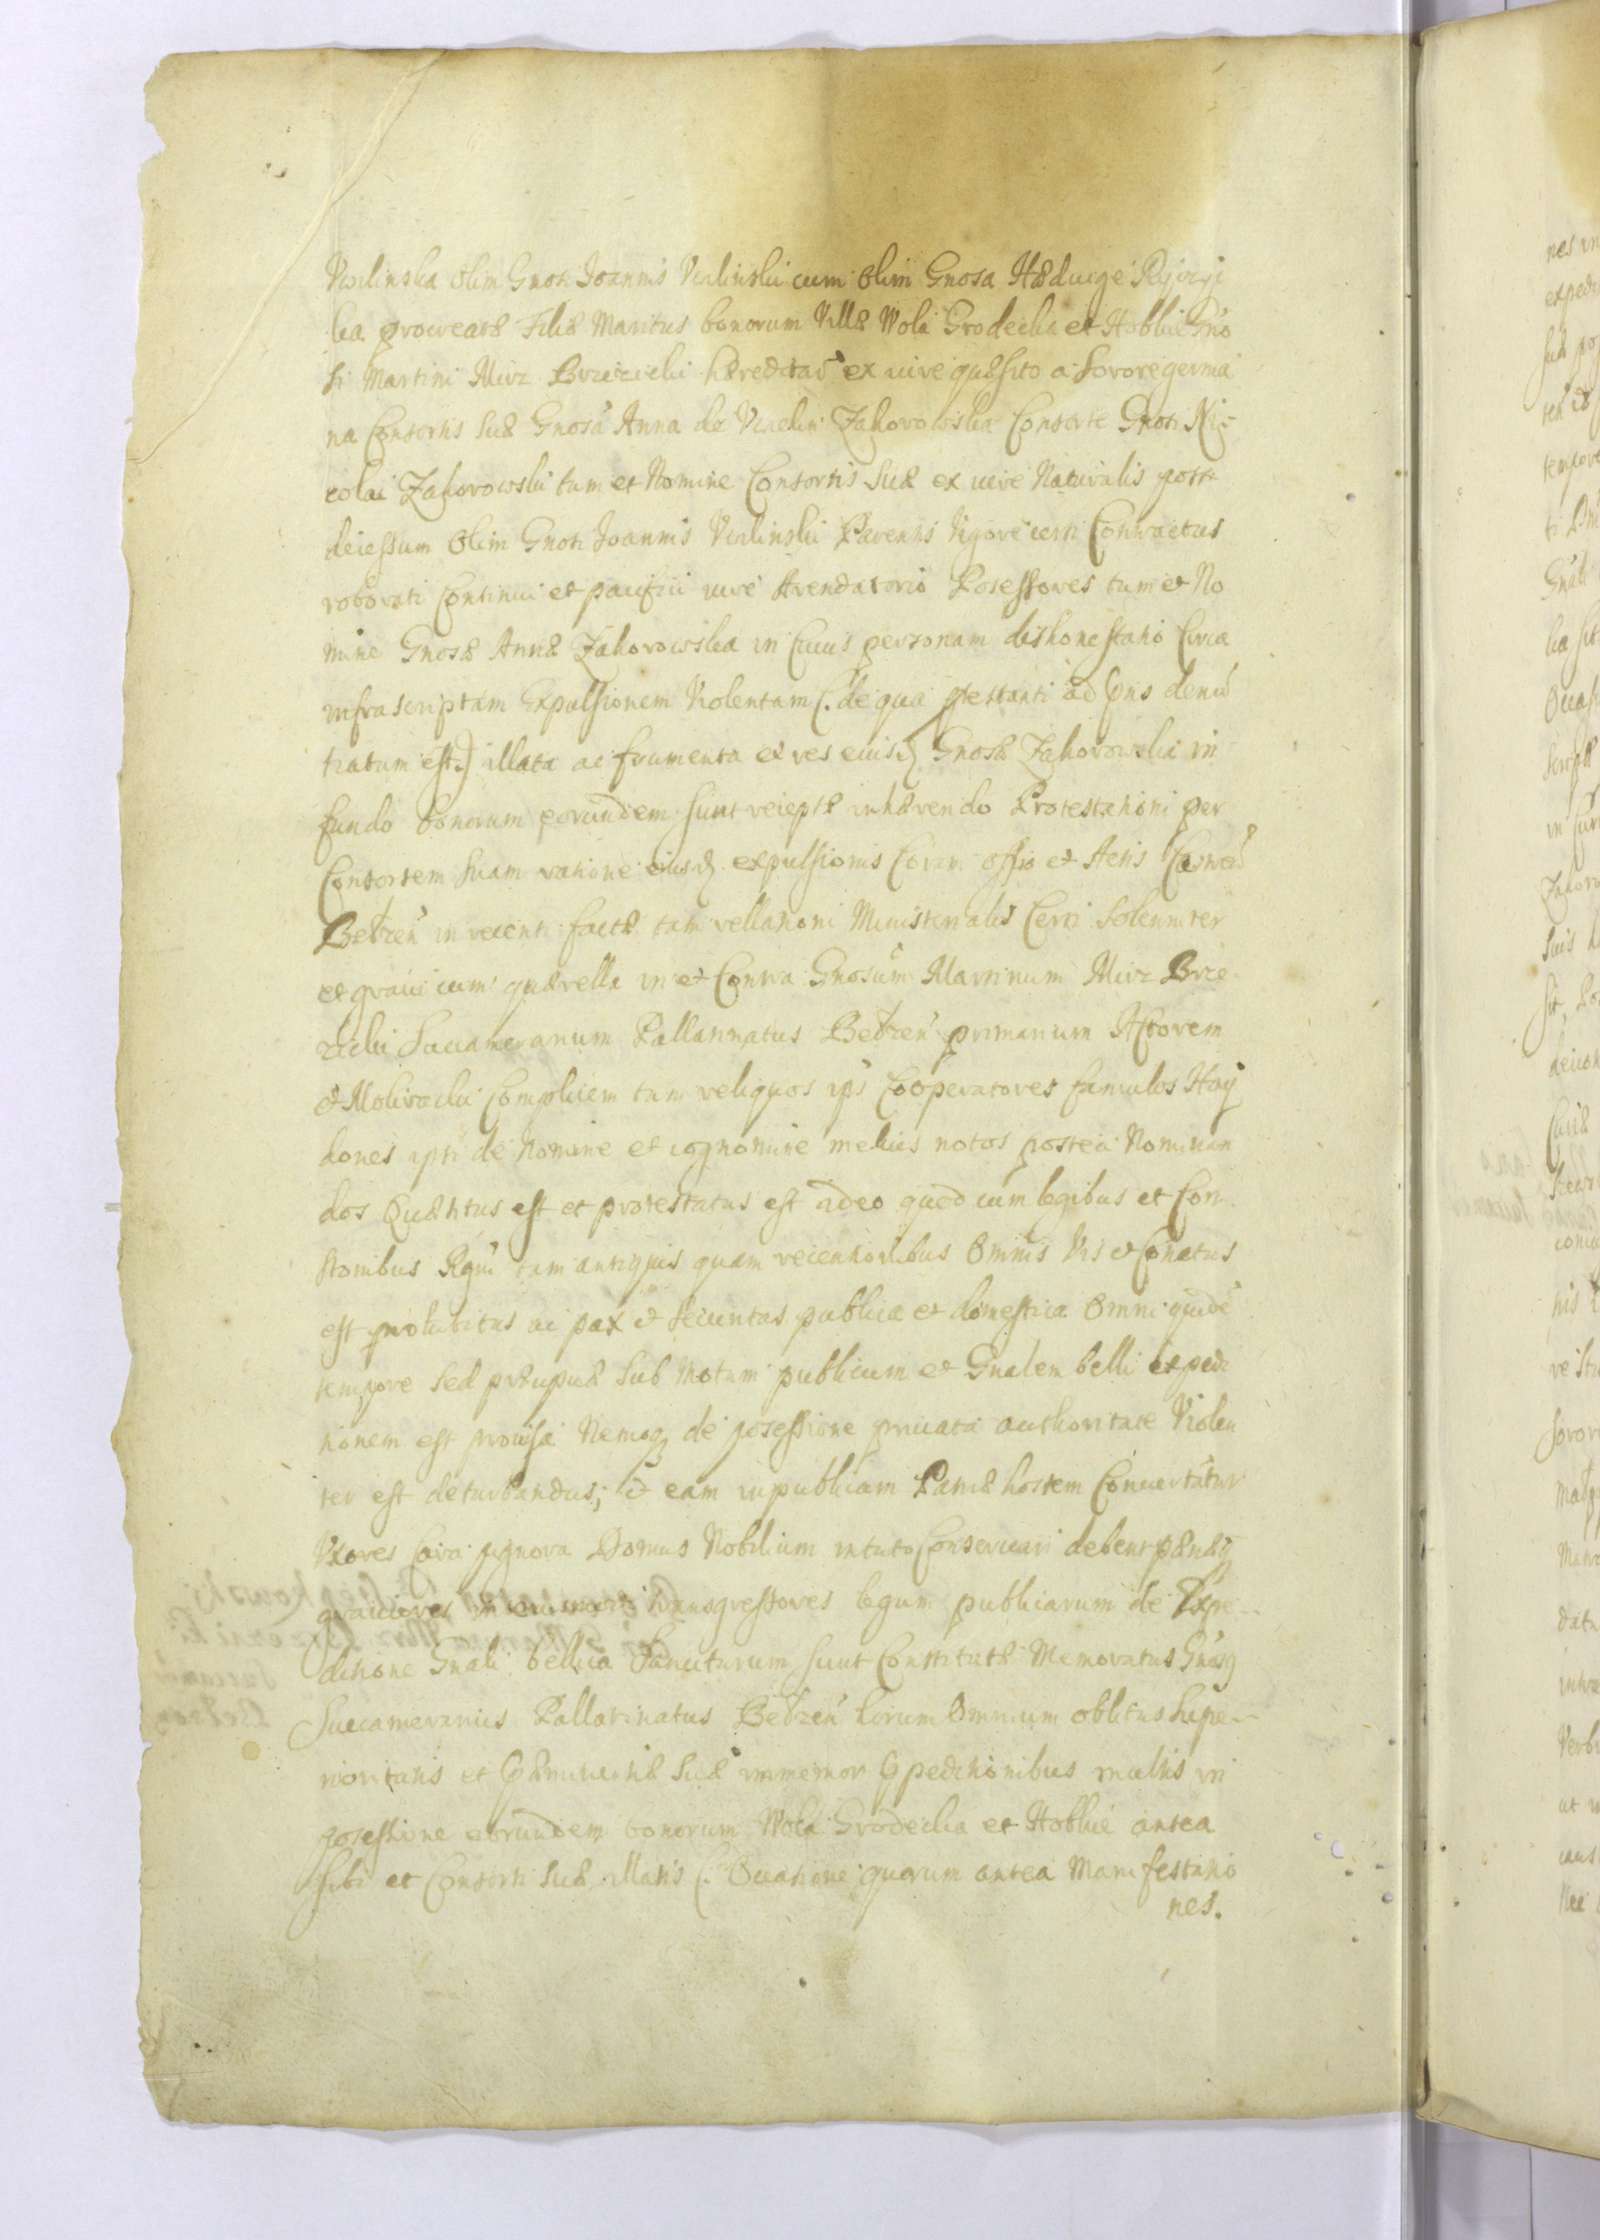 Verlinska olim Gnosi Joannis Verlinski cum olim Gnosa Hæduige
ca procreatæ Filiæ Maritus bonorum Villæ Wola Grodecka et Hobkie Gno
si Martini Mirz Brzezicki hæreditar ex iure quæsito a Sorore germa
na Consortis suæ Gnosa Anna de Zahorowska Consorte Gnosi Ni-
colai Zahorowski tum et Nomine Consortis suæ ex iure Naturalis post
decessum olim Gnosi Joannis Verlinski Parentis vigore certi Contractus
roborati Continui et pacifici iure Arendatorio Posessores tum et No
mine Gnosæ Annæ Zahorowska in Cuius personam dishonestatio Circa
infrascriptam Expulsionem Violentam (. de qua ptestanti ad pns
tiatum est.) illata ac frumenta et res eiusd Gnosæ Zahorowska in
fundo bonorum eorundem sunt receptæ inhærendo Protestationi per
Consortem suam ratione eiusd expulsionis Coram Offio et Actis Castren
Betzen in recenti factæ tam rellationi Ministerialis Certi Solenniter
et graui cum quærella in et Contra Gnosum Martinum Mirz Brze
zicki Succamerarium Pallatinatus Betzen primarium Actorem
et Complicem tum reliquos ipsi Cooperatores famulos Hay
dones ipsi de Nomine et cognomine melius notos postea Nominan
dos Quæstus est et protestatus est adeo quod cum legibus et Con
stonibus Rgni tam antiquis quam recentioribus Omnis Vis et Conatus
est prohibitus ac pax et securitas publica et domestica Omni quide
tempore sed præcipuæ sub Motum publicum et Gnalem belli expedi
tionem est prouisa Nemoq de posessione priuata authoritate Violen
ter est deturbandus; et eam in publicam Patriæ hostem Conuertatur
Uxores Cara pignora Domus Nobilium in tuto Conseruari debent pænæq
grauiores in transgressores legum publicarum de Expe-
ditione Gnali bellica Sancitarum sunt Constitutæ Memoratus Gnosq
Succamerarius Pallatinatus Betzen horum Omnium oblitus supe-
rioritatis et suæ immemor Expeditionibus multis in
posessione eorundem bonorum Wola Grodecka et Hobkie antea
sibi et Consorti suæ illatis (. Occatione quarum antea Manifestatio
nes.